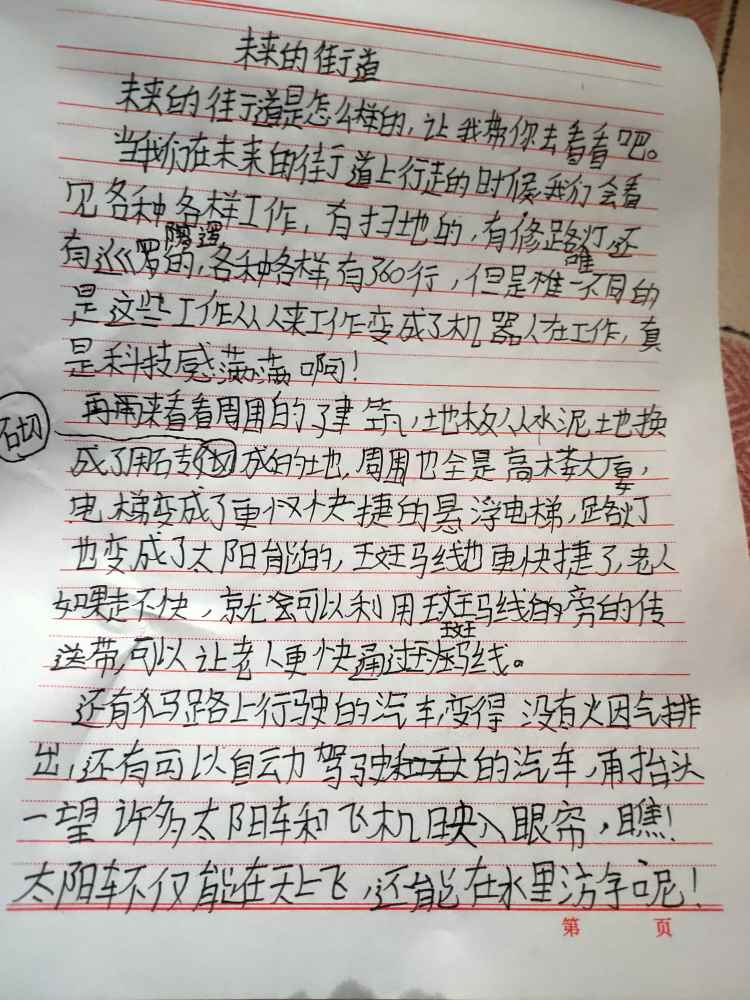 未来的街道
未来的街道是怎么样的，让我带你去看看吧。
当我们在未来的街道上行走的时候，我们会看
见各种各样工作，有扫地的，有修路灯，还
有巡逻的，各种各样，有360行，但是唯一不同的
是这些工作从人来工作变成了机器人在工作，真
是科技感满满啊！
再来看看周围的建筑，地板从水泥地换
砌
成了用石专砌成的地，周围也全是高楼大厦，
电梯变成了更加快捷的悬浮电梯，路灯
也变成了太阳能的，斑马线也更快捷了，老人
如果走不快，就会可以利用斑马线的旁的传
送带，可以让老人更快通过斑马线。
还有马路上行驶的汽车，变得没有火因气排
出，还有可以自动驾驶的汽车，再抬头
一望许多太阳车和飞机映入眼帘，瞧！
太阳车不仅能在天上飞，还能在水里游字呢！
第 页